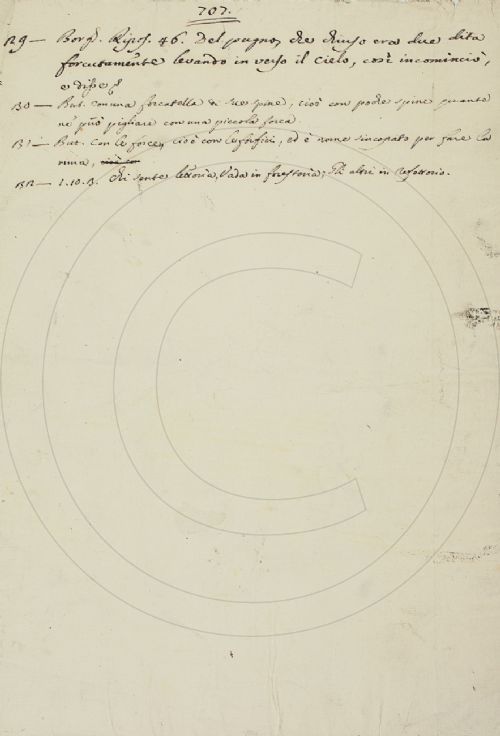 707.
129 — Borg. Ripos. 46. Del pugno, che chiuso era due dita
forcutamente levando in verso il Cielo, così incominciò,
e disse
130 — But. Con una forcatella di sue spine, cioè con poche spine quanto
ne può pigliare con una piccola forca
131 — But. Con le force, cioè con le forfici, ed è nome sincopato per fare la
rima, cioè con
132 — 1.10.3. Chi sente lettoria, Vada in forestoria, Gli altri in Refettorio.